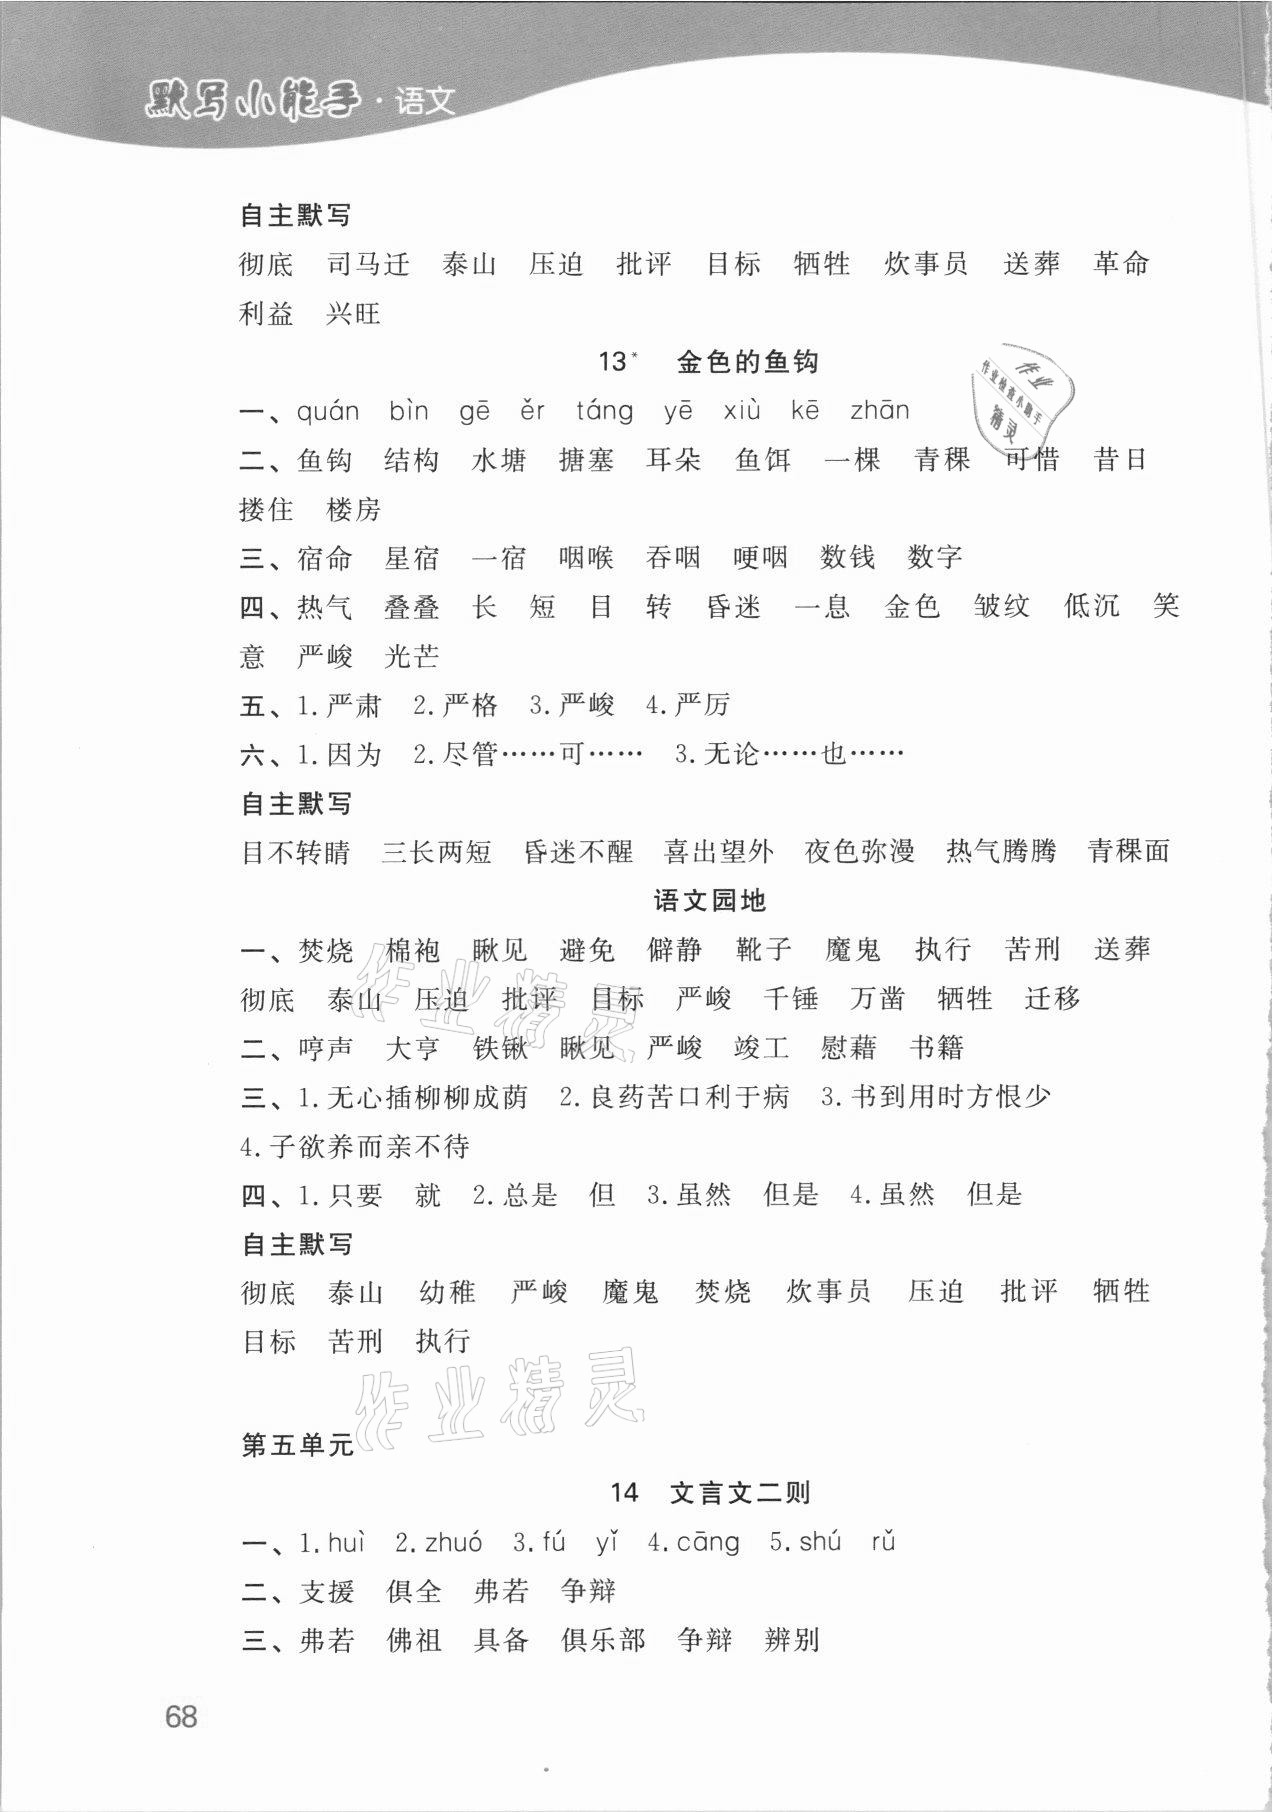 默写小能手·语文
自主默写
彻底 司马迁 泰山 压迫 批评 目标 牺牲 炊事员 送葬 革命
利益 兴旺
13* 金色的鱼钩
作业
作业检查小助手
精灵
一、quán bìn gē ěr táng yē xiù kē zhān
二、鱼钩 结构 水塘 搪塞 耳朵 鱼饵 一棵 青稞 可惜 昔日
搂住 楼房
三、宿命 星宿 一宿 咽喉 吞咽 哽咽 数钱 数字
四、热气 叠叠 长 短 目 转 昏迷 一息 金色 皱纹 低沉 笑
意 严峻 光芒
五、1.严肃 2.严格 3.严峻 4.严厉
六、1.因为 2.尽管……可…… 3.无论……也……
自主默写
目不转睛 三长两短 昏迷不醒 喜出望外 夜色弥漫 热气腾腾 青稞面
语文园地
一、焚烧 棉袍 瞅见 避免 僻静 靴子 魔鬼 执行 苦刑 送葬
彻底 泰山 压迫 批评 目标 严峻 千锤 万凿 牺牲 迁移
作业精灵
二、哼声 大亨 铁锹 瞅见 严峻 竣工 慰藉 书籍
三、1.无心插柳柳成荫 2.良药苦口利于病 3.书到用时方恨少
4.子欲养而亲不待
四、1.只要 就 2.总是 但 3.虽然 但是 4.虽然 但是
自主默写
彻底 泰山 幼稚 严峻 魔鬼 焚烧 炊事员 压迫 批评 牺牲
目标 苦刑 执行
作业精灵
第五单元
14 文言文二则
一、1.huì 2.zhuó 3.fú yǐ 4.cāng 5.shú rǔ
二、支援 俱全 弗若 争辩
三、弗若 佛祖 具备 俱乐部 争辩 辨别
68